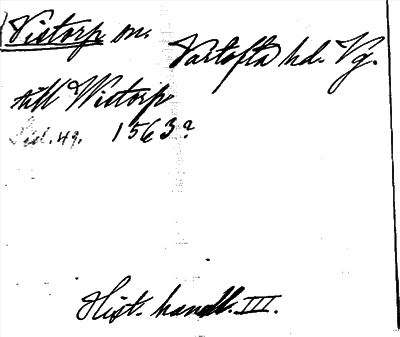 Vistorp sn.
Vartofta hd. Vg.
till Wistorp
Sid. 49. 1563?
Hist. handl. III.